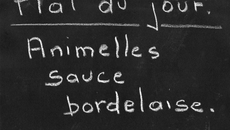 Plat du jour.
Animelles
sauce
bordelaise.